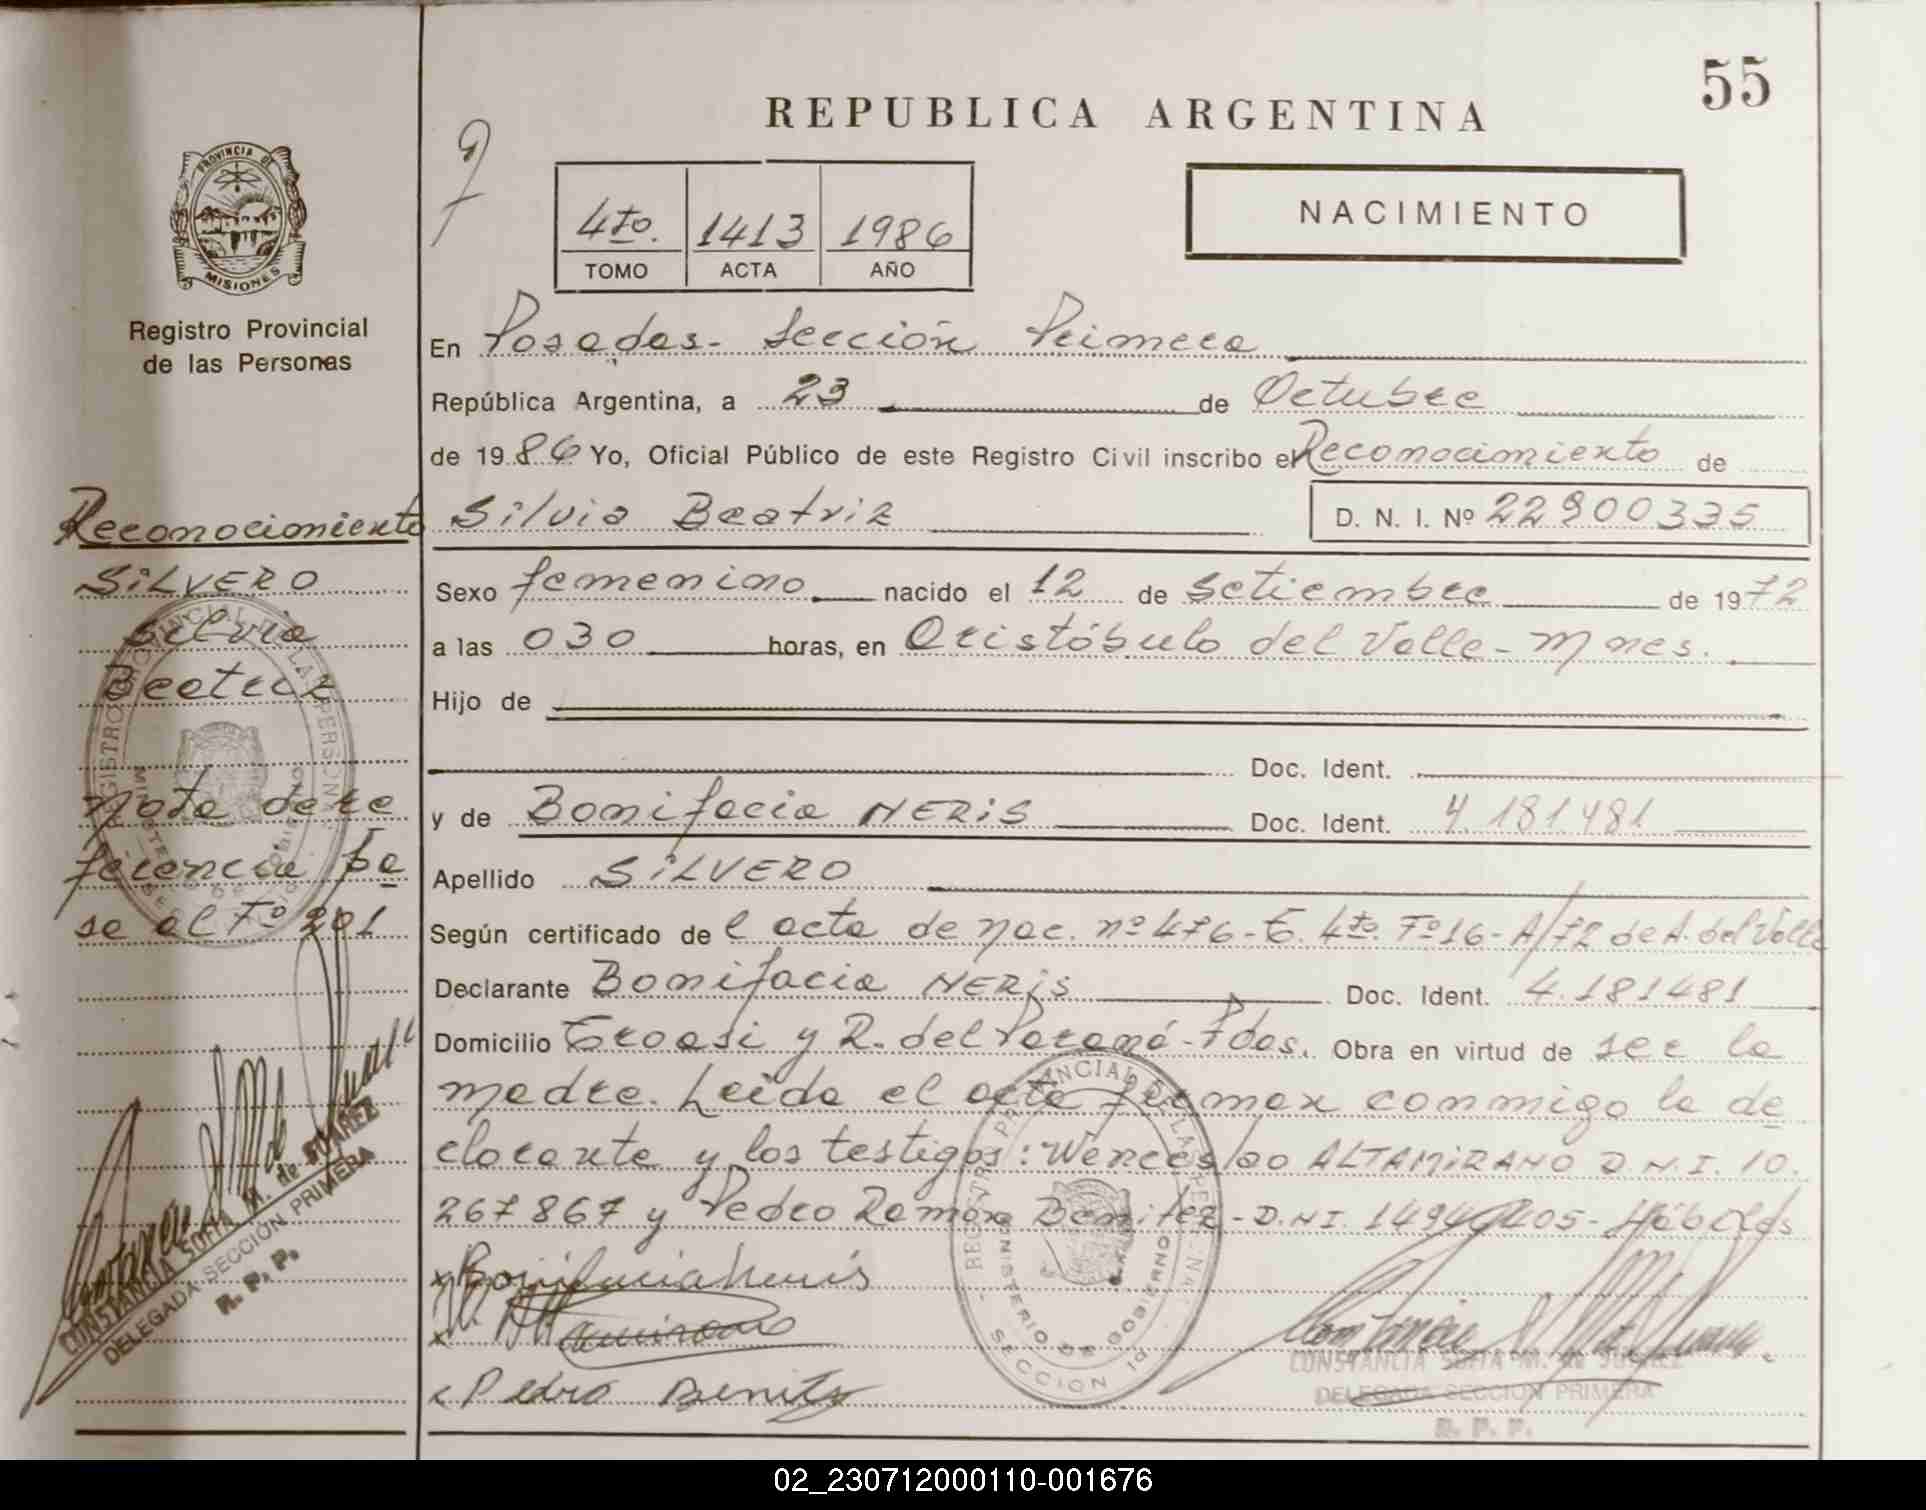 55
REPUBLICA ARGENTINA
PROVINCIA DE
MISIONES
4to. 1413 1986
TOMO ACTA AÑO
NACIMIENTO
Registro Provincial
de las Personas
En Posadas - Sección Primera
República Argentina, a 23 de Octubre
de 1986 Yo, Oficial Público de este Registro Civil inscribo el Reconocimiento de
Silvia Beatriz D. N. I. Nº 22900335
Sexo femenino nacido el 12 de Setiembre de 1972
a las 030 horas, en Aristóbulo del Valle - Mnes.
Hijo de
Doc. Ident.
y de Bonifacia NERIS Doc. Ident. 4.181.481
Apellido SILVERO
Según certificado de l acta de nac. nº 476 - T. 4to. Fº 16 - A/72 de A. del Valle
Declarante Bonifacia NERIS Doc. Ident. 4.181481
Domicilio y R. del Paraná - Pdas. Obra en virtud de ser la
madre. Leida el acta firman conmigo la de
clarante y los testigos: Wenceslao ALTAMIRANO D.N.I. 10.
267867 y Pedro Ramón Benitez - D.N.I. - Hábiles
Bonifacia Neris
Pedro Benitez
CONSTANCIA SOFIA M. de SUAREZ
DELEGADA SECCION PRIMERA
R. P. P.
Reconocimiento
SILVERO
Silvia
Beatriz
Nota de re
ferencia pa
se al Fº 201
CONSTANCIA SOFIA M. de SUAREZ
DELEGADA SECCIÓN PRIMERA
R. P. P.
02_230712000110-001676